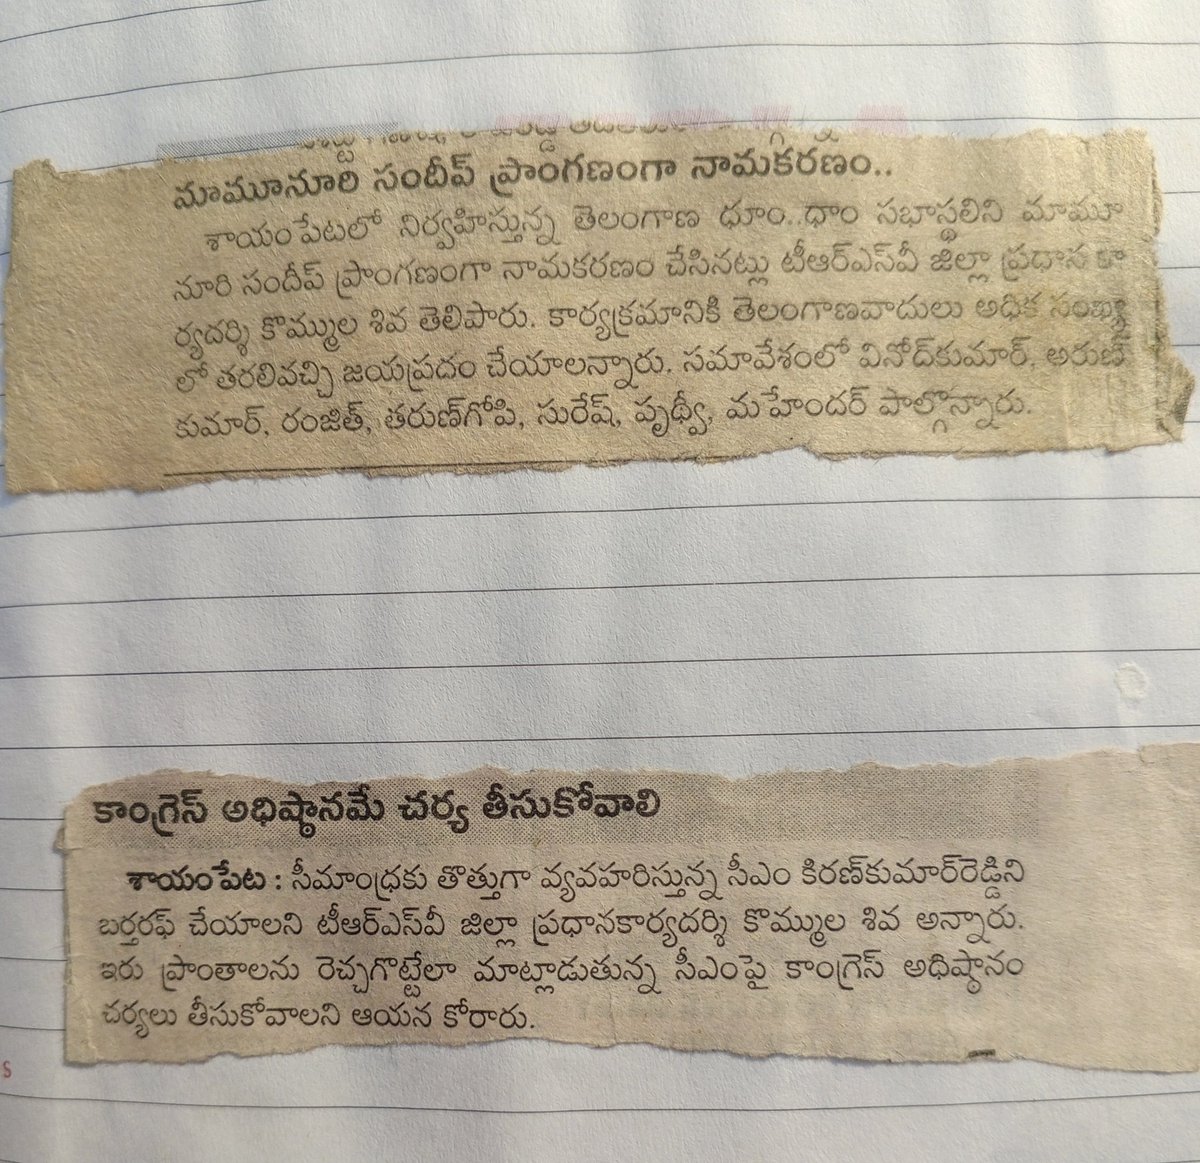 మామూనూరి సందీప్ ప్రాంగణంగా నామకరణం..
శాయంపేటలో నిర్వహిస్తున్న తెలంగాణ ధూం..ధాం సభాస్థలిని మామూ
నూరి సందీప్ ప్రాంగణంగా నామకరణం చేసినట్లు టీఆర్ఎస్‌వీ జిల్లా ప్రధాన కా
ర్యదర్శి కొమ్ముల శివ తెలిపారు. కార్యక్రమానికి తెలంగాణవాదులు అధిక సంఖ్య
లో తరలివచ్చి జయప్రదం చేయాలన్నారు. సమావేశంలో వినోద్‌కుమార్, అరుణ్
కుమార్, రంజిత్, తరుణ్‌గోపి, సురేష్, పృథ్వీ, మహేందర్ పాల్గొన్నారు.
కాంగ్రెస్ అధిష్ఠానమే చర్య తీసుకోవాలి
శాయంపేట : సీమాంధ్రకు తొత్తుగా వ్యవహరిస్తున్న సీఎం కిరణ్‌కుమార్‌రెడ్డిని
బర్తరఫ్ చేయాలని టీఆర్ఎస్‌వీ జిల్లా ప్రధానకార్యదర్శి కొమ్ముల శివ అన్నారు.
ఇరు ప్రాంతాలను రెచ్చగొట్టేలా మాట్లాడుతున్న సీఎంపై కాంగ్రెస్ అధిష్ఠానం
చర్యలు తీసుకోవాలని ఆయన కోరారు.